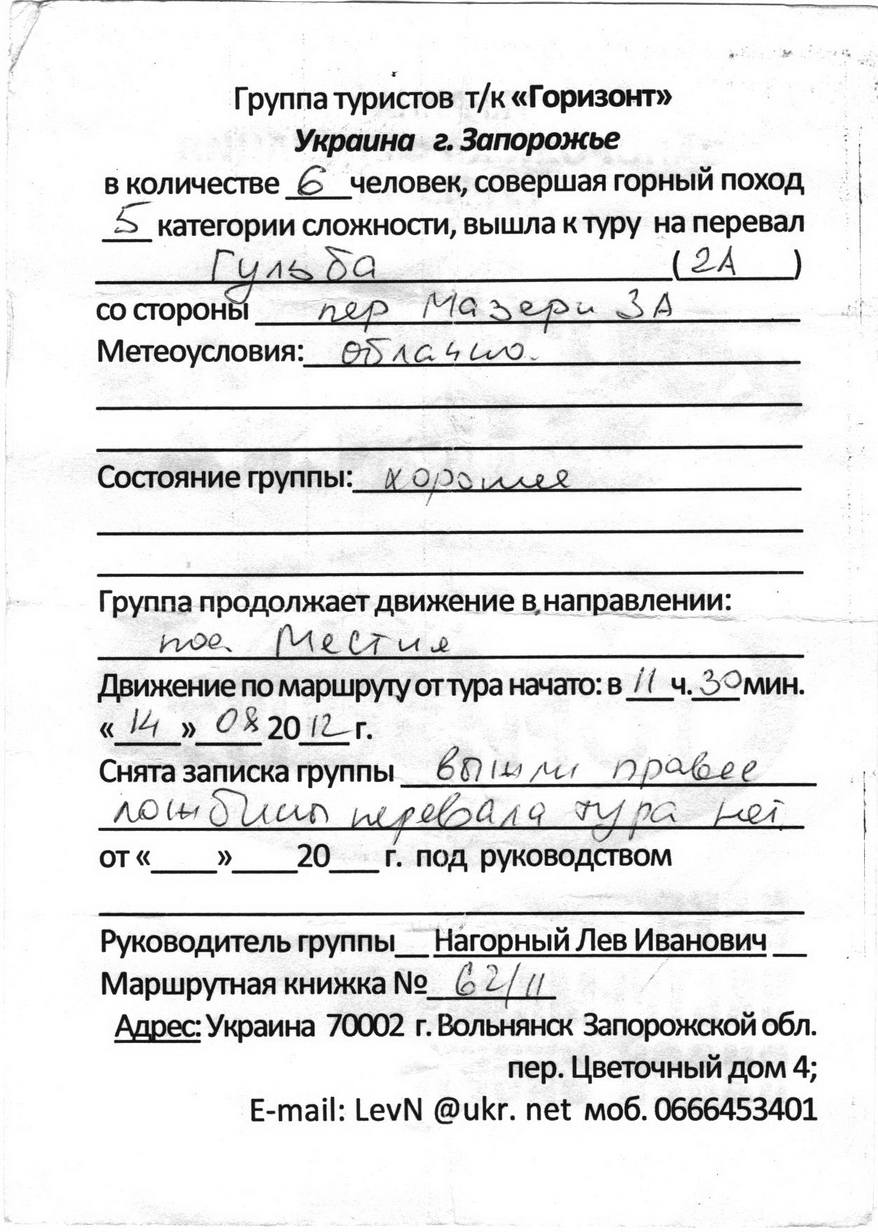 Группа туристов т/к «Горизонт»
Украина г. Запорожье
в количестве 6 человек, совершая горный поход
5 категории сложности, вышла к туру на перевал
Гульба (2А)
со стороны пер Мазери 3А
Метеоусловия: облачно.
Состояние группы: хорошее
Группа продолжает движение в направлении:
пос. Местия
Движение по маршруту от тура начато: в 11 ч. 30 мин.
«14» 08 2012 г.
Снята записка группы вышли правее
ложбины перевала тура нет
от «____»____20___ г. под руководством
Руководитель группы__ Нагорный Лев Иванович __
Маршрутная книжка № 62/11
Адрес: Украина 70002 г. Вольнянск Запорожской обл.
пер. Цветочный дом 4;
E-mail: LevN @ukr. net моб. 0666453401